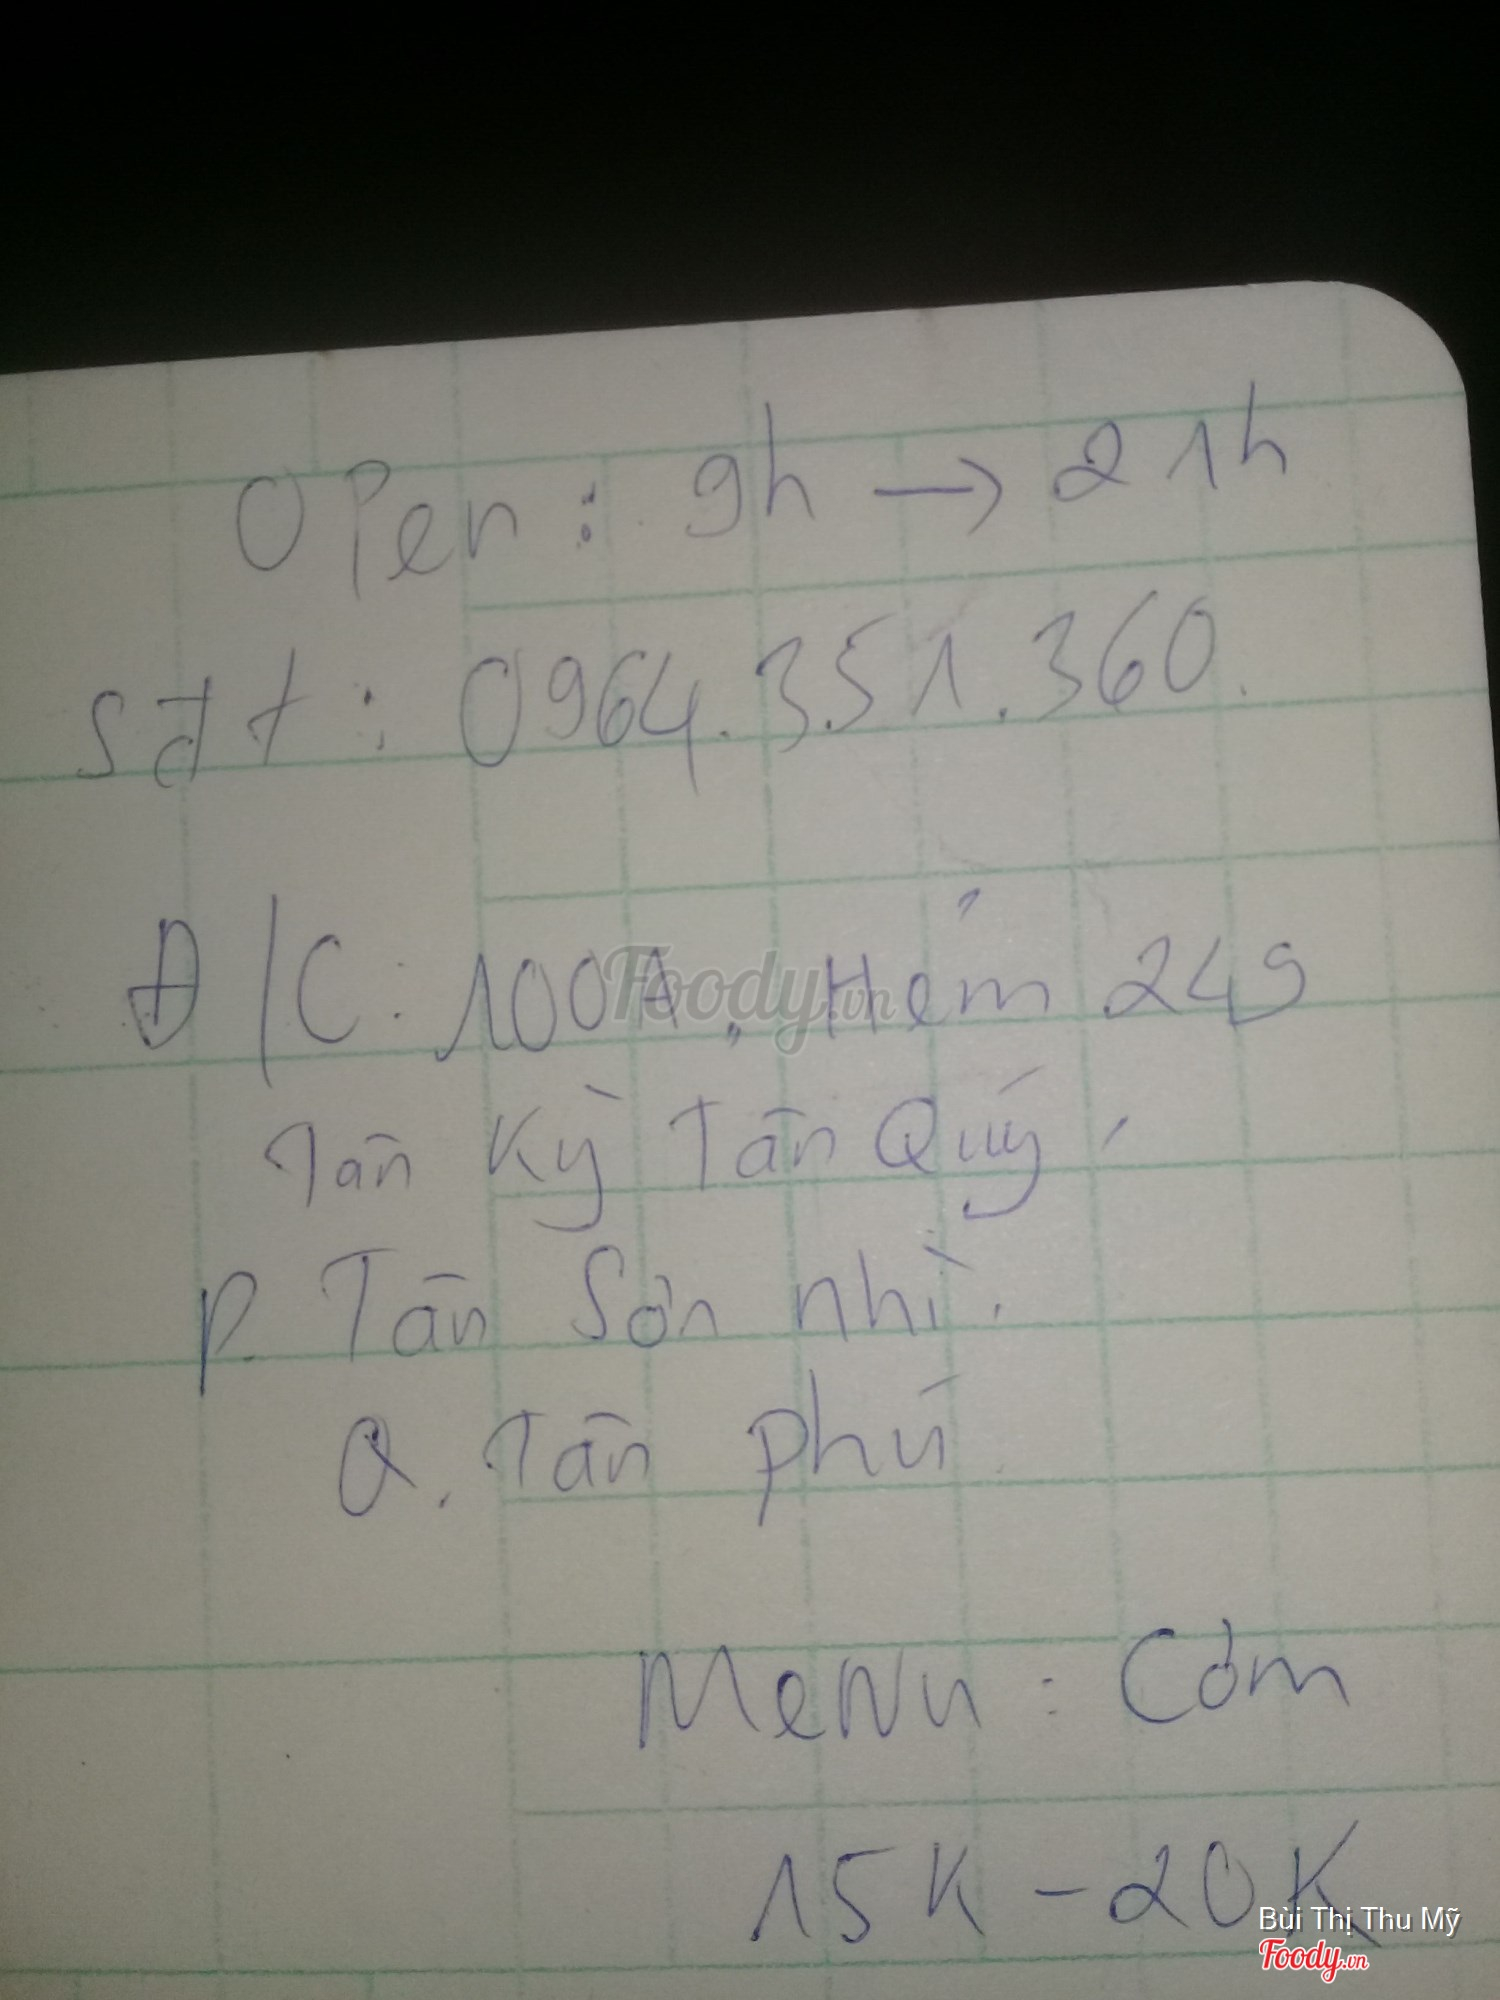 Open: 9h → 21h
Sđt: 0964.351.360.
Đ/C: 100A, Hẻm 249
Tân Kỳ Tân Quý,
P. Tân Sơn nhì.
Q. Tân phú
Menu: Cơm
15K - 20K
Foody.vn
Bùi Thị Thu Mỹ
Foody.vn